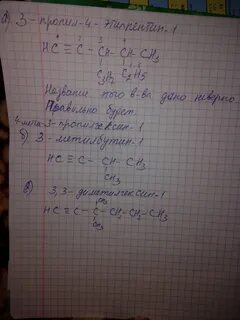 а) 3-пропил-4-этилпентин-1
1 2 3 4 5
HC ≡ C - CH - CH - CH₃
C₃H₇ C₂H₅
Название этого в-ва дано неверно.
Правильно будет:
4 метил-3-пропилгексин-1
б) 3-метилбутин-1
HC ≡ C - CH - CH₃
CH₃
в) 3,3-диметилгексин-1
CH₃
HC ≡ C - C - CH₂ - CH₂ - CH₃
CH₃